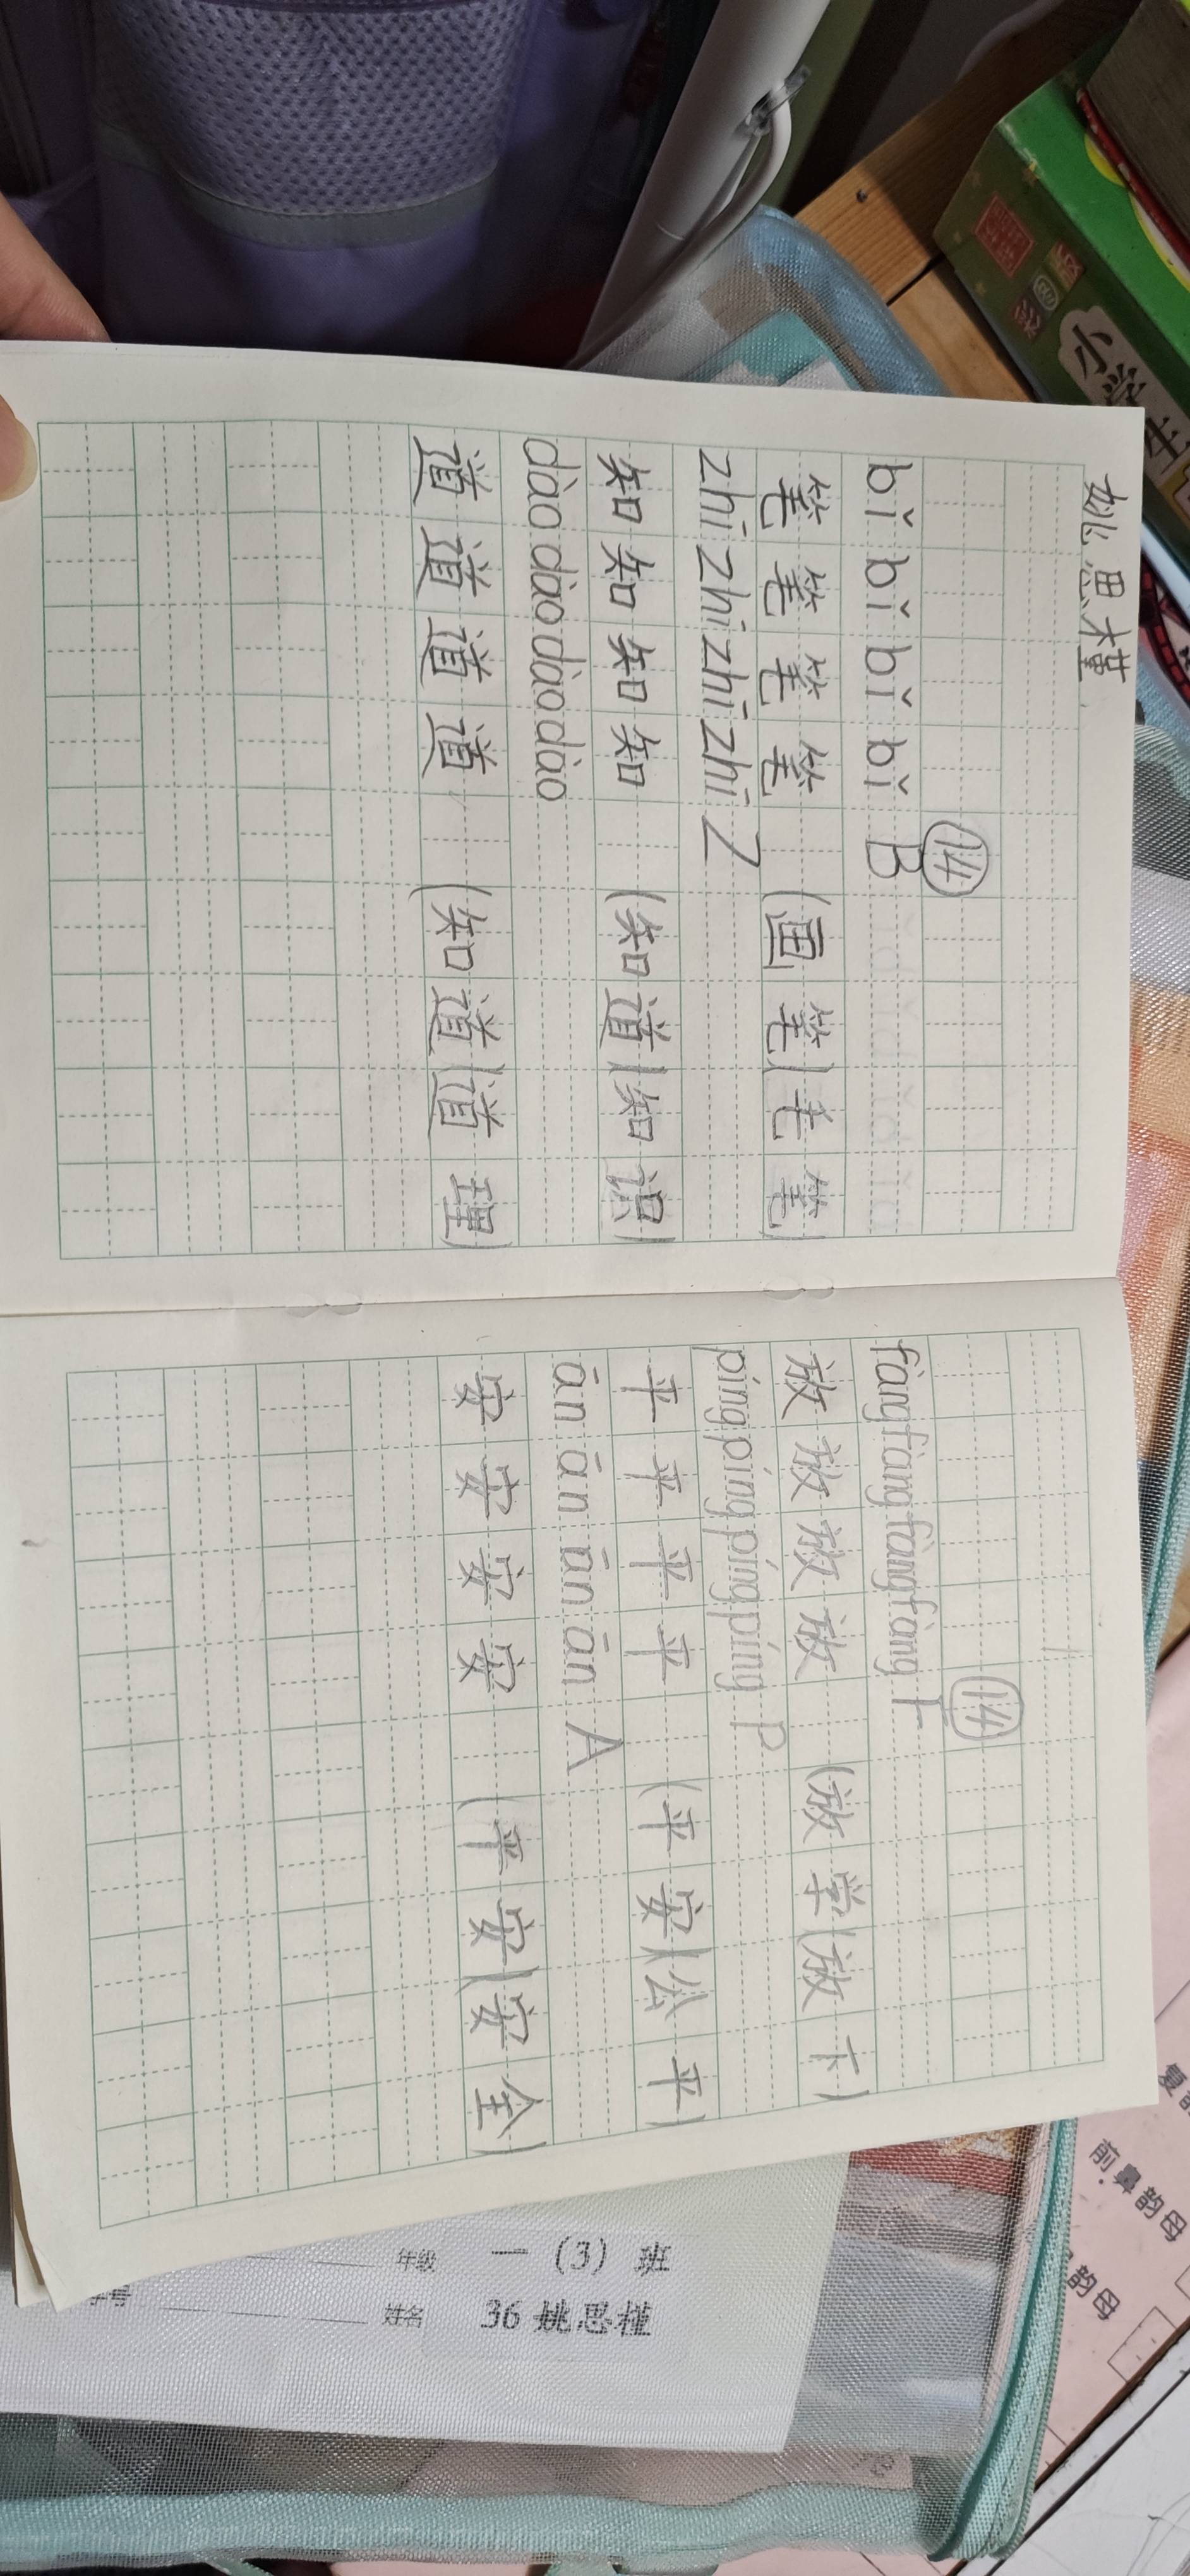 姚思槿
⑭
bǐ bǐ bǐ bǐ B
笔 笔 笔 笔 (画 笔)(毛 笔)
zhī zhī zhī zhī Z
知 知 知 知 (知 道)(知 识)
dào dào dào dào
道 道 道 道 (知 道)(道 理)
⑭
fàng fàng fàng fàng F
放 放 放 放 (放 学)(放 下)
píng píng píng píng P
平 平 平 平 (平 安)(公 平)
ān ān ān ān A
安 安 安 安 (平 安)(安 全)
年级 一 (3) 班
姓名 36 姚思槿
学号
小学生
前鼻韵母
韵母